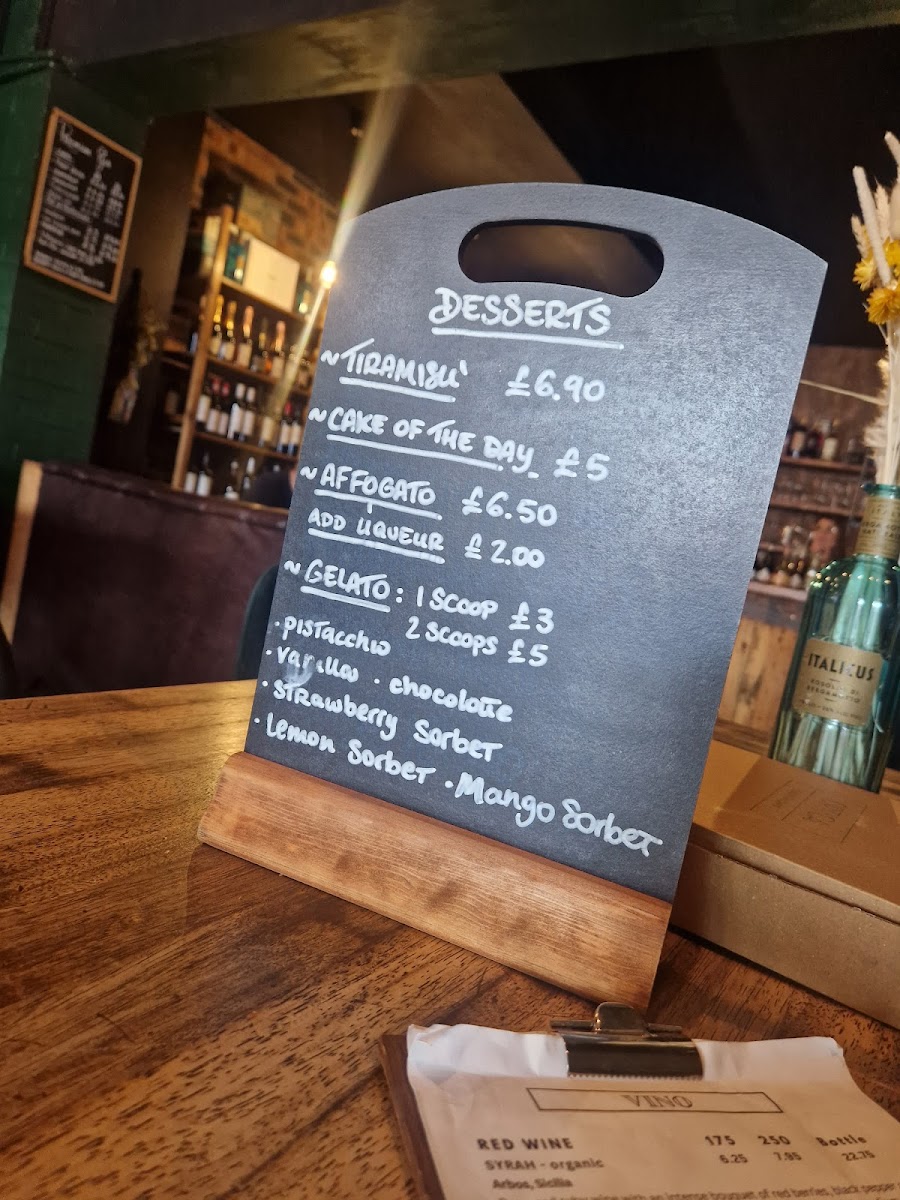 DESSERTS
~ TIRAMISU' £6.90
~ CAKE OF THE DAY £5
~ AFFOGATO £6.50
ADD LIQUEUR £2.00
~ GELATO: 1 SCOOP £3
2 SCOOPS £5
· PISTACCHIO
· Vanilla · chocolate
· STRAWBERRY Sorbet
· Lemon Sorbet · Mango Sorbet
ITALICUS
ROSOLIO DI
BERGAMOTTO
VINO
RED WINE 175 250 Bottle
SYRAH - organic 6.25 7.95 22.75
Arbos, Sicilia